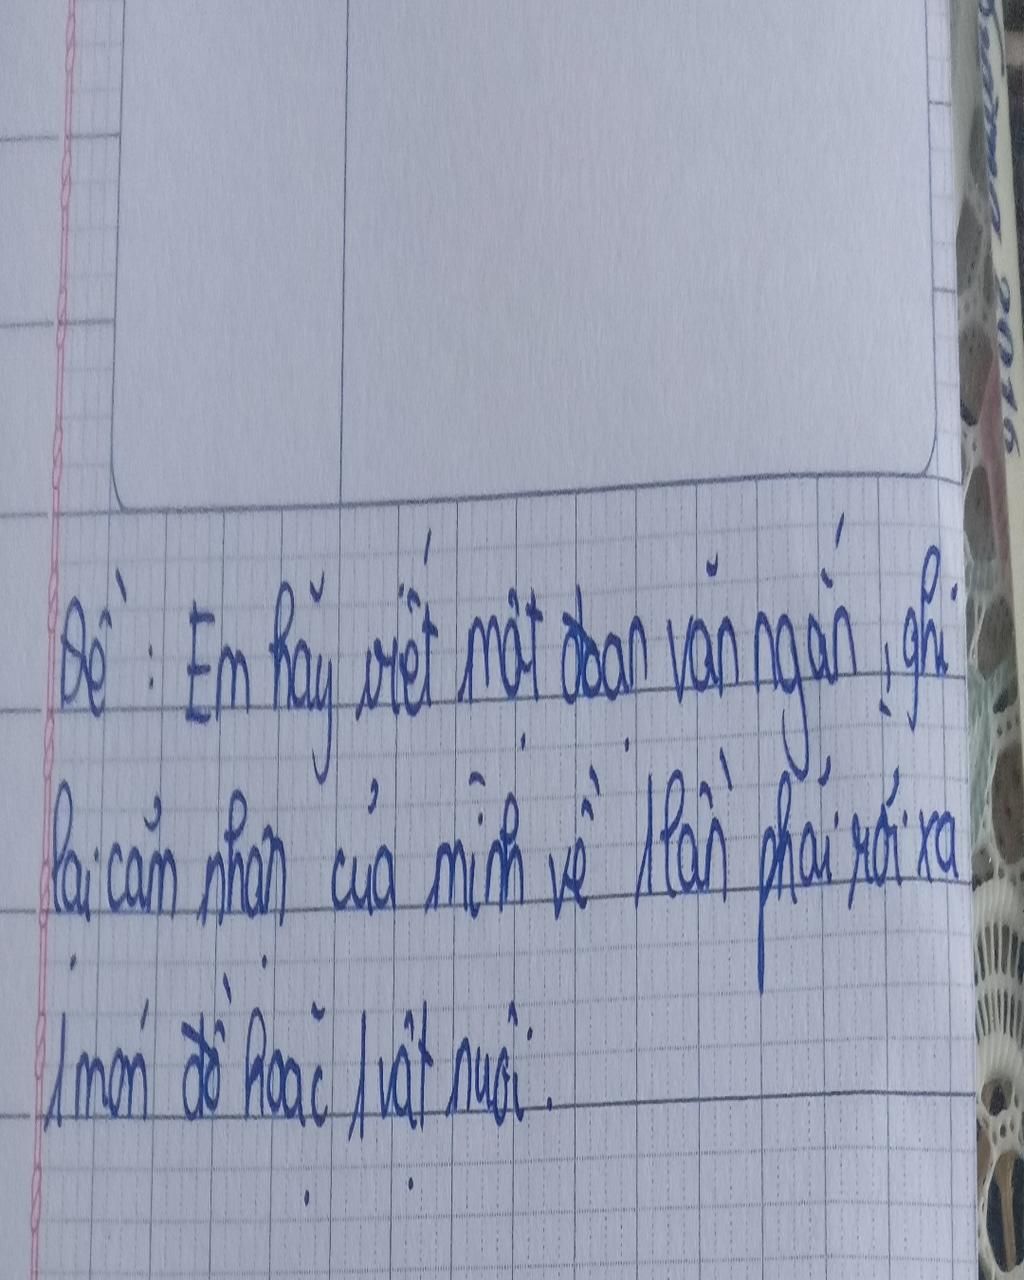 Đề : Em hãy viết một đoạn văn ngắn, ghi
lại cảm nhận của mình về 1 lần phải rời xa
1 món đồ hoặc 1 vật nuôi.
2016